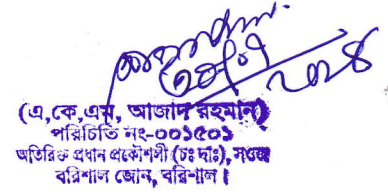 ২০২৪
(এ,কে,এম, আজাদ রহমান)
পরিচিতি নং-০০১৫০১
অতিরিক্ত প্রধান প্রকৌশলী (চঃ দাঃ), সওজ
বরিশাল জোন, বরিশাল।